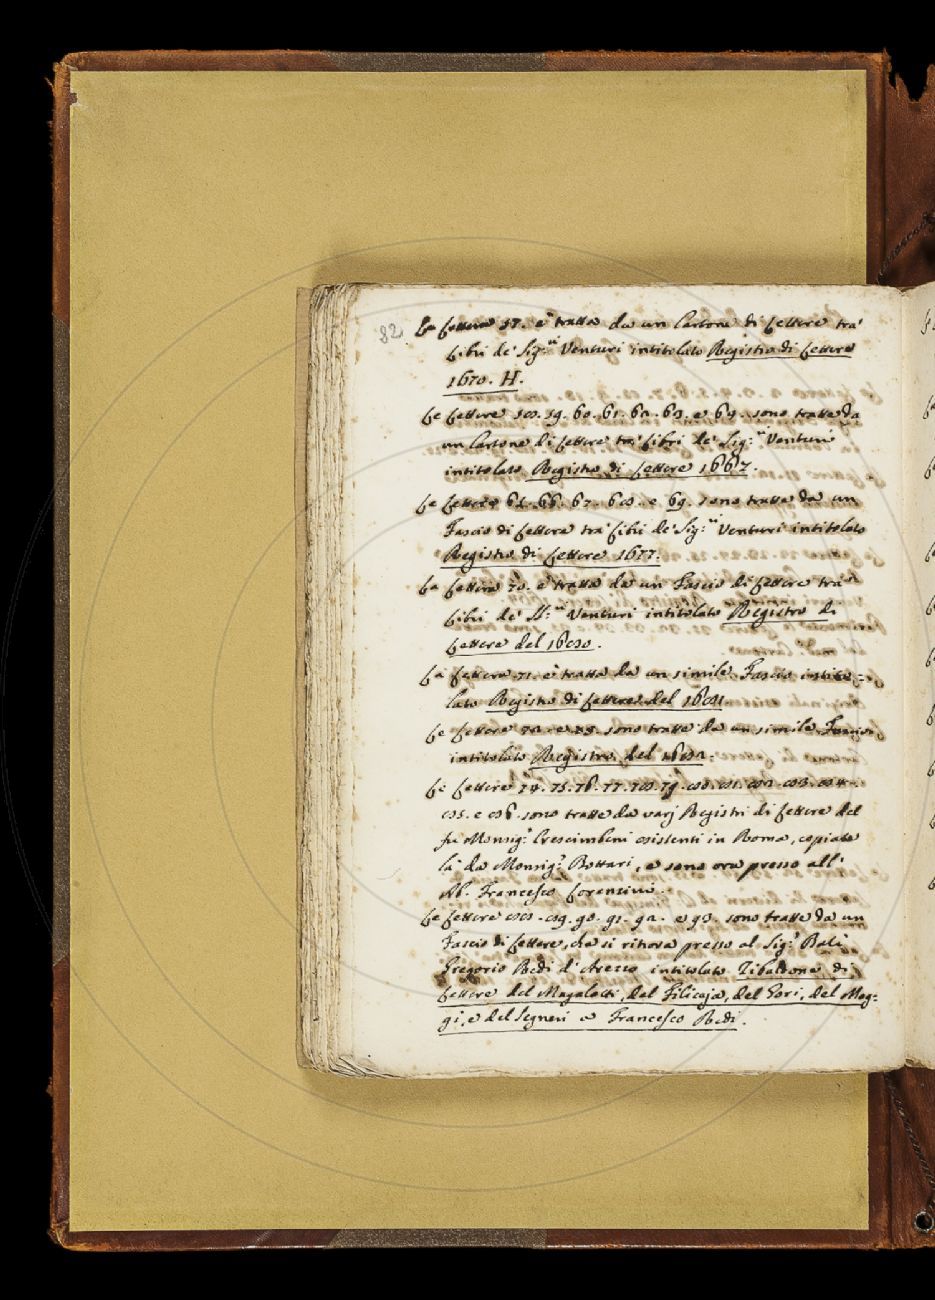 82
La Lettera 57. è tratta da un Cartone di Lettere tra'
Libri de' Sig.ri Venturi intitolato Registro di Lettere
1670. H.
Le Lettere 58. 59. 60. 61. 62. 63. e 64. sono tratte da
un Cartone di Lettere tra' Libri de' Sig.ri Venturi
intitolato Registro di Lettere 1667.
Le Lettere 65. 66. 67. 68. e 69. sono tratte da un
Fascio di Lettere tra' Libri de' Sig.ri Venturi intitolato
Registro di Lettere 1677.
La Lettera 70. è tratta da un Fascio di Lettere tra'
Libri de' SS.ri Venturi intitolato Registro di
Lettere del 1680.
La Lettera 71. è tratta da un simile Fascio intito=
lato Registro di Lettere del 1681
Le Lettere 72. e 73. sono tratte da un simile Fascio
intitolato Registro del 1682.
Le Lettere 74. 75. 76. 77. 78. 79. 80. 81. 82. 83. 84.
85. e 86. sono tratte da varj Registri di Lettere del
fù Monsig.r Crescimbeni esistenti in Roma, copiate
là da Monsig.r Bottari, e sono ora presso all'
Ab. Francesco Lorenzini.
Le Lettere 88. 89. 90. 91. 92. e 93. sono tratte da un
Fascio di Lettere, che si ritrova presso al Sig.r Balì
Gregorio Redi d'Arezzo intitolato Zibaldone di
Lettere del Magalotti, del Filicaja, del Gori, del Mag=
gi, e del Segneri a Francesco Redi.